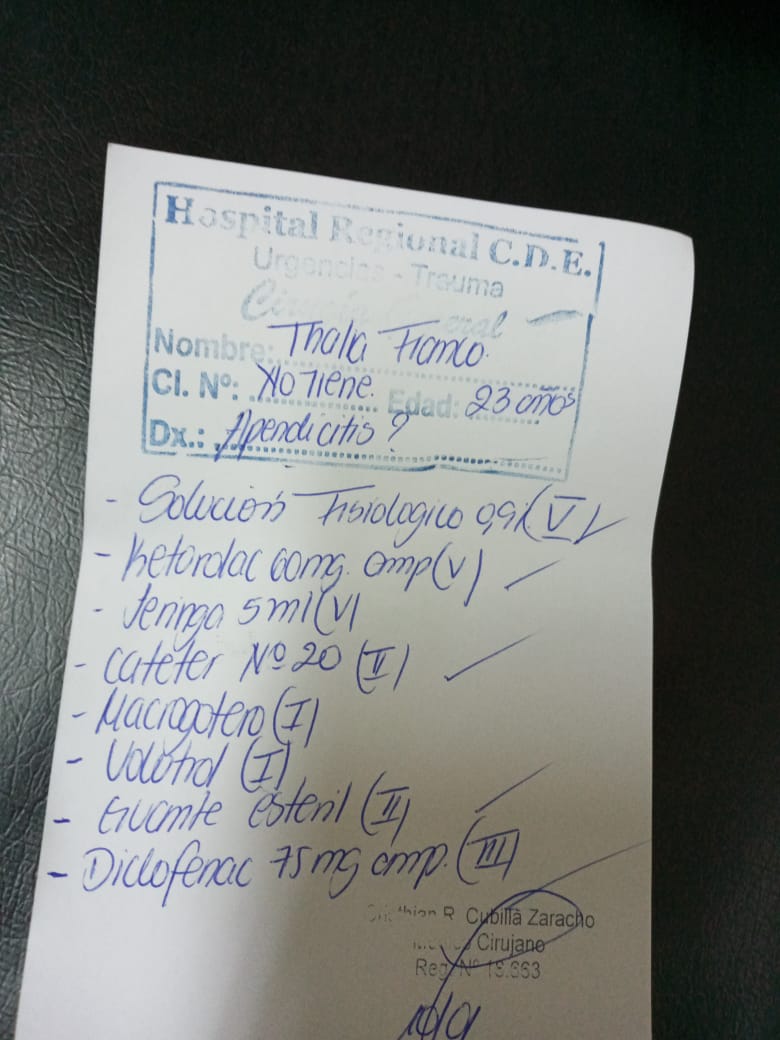 Hospital Regional C.D.E.
Urgencias - Trauma
Cirugía General
Nombre: Thalia Franco.
CI. Nº: No Tiene. Edad: 23 años
Dx.: Apendicitis?
- Solución Fisiologico 0,9% (V)
- Ketorolac 60mg. amp (V)
- Jeringa 5ml (V)
- Cateter Nº 20 (II)
- Macrogotero (I)
- Volutrol (I)
- Guante esteril (II)
- Diclofenac 75mg amp. (III)
R. Cubilla Zaracho
Cirujano
Reg. Nº